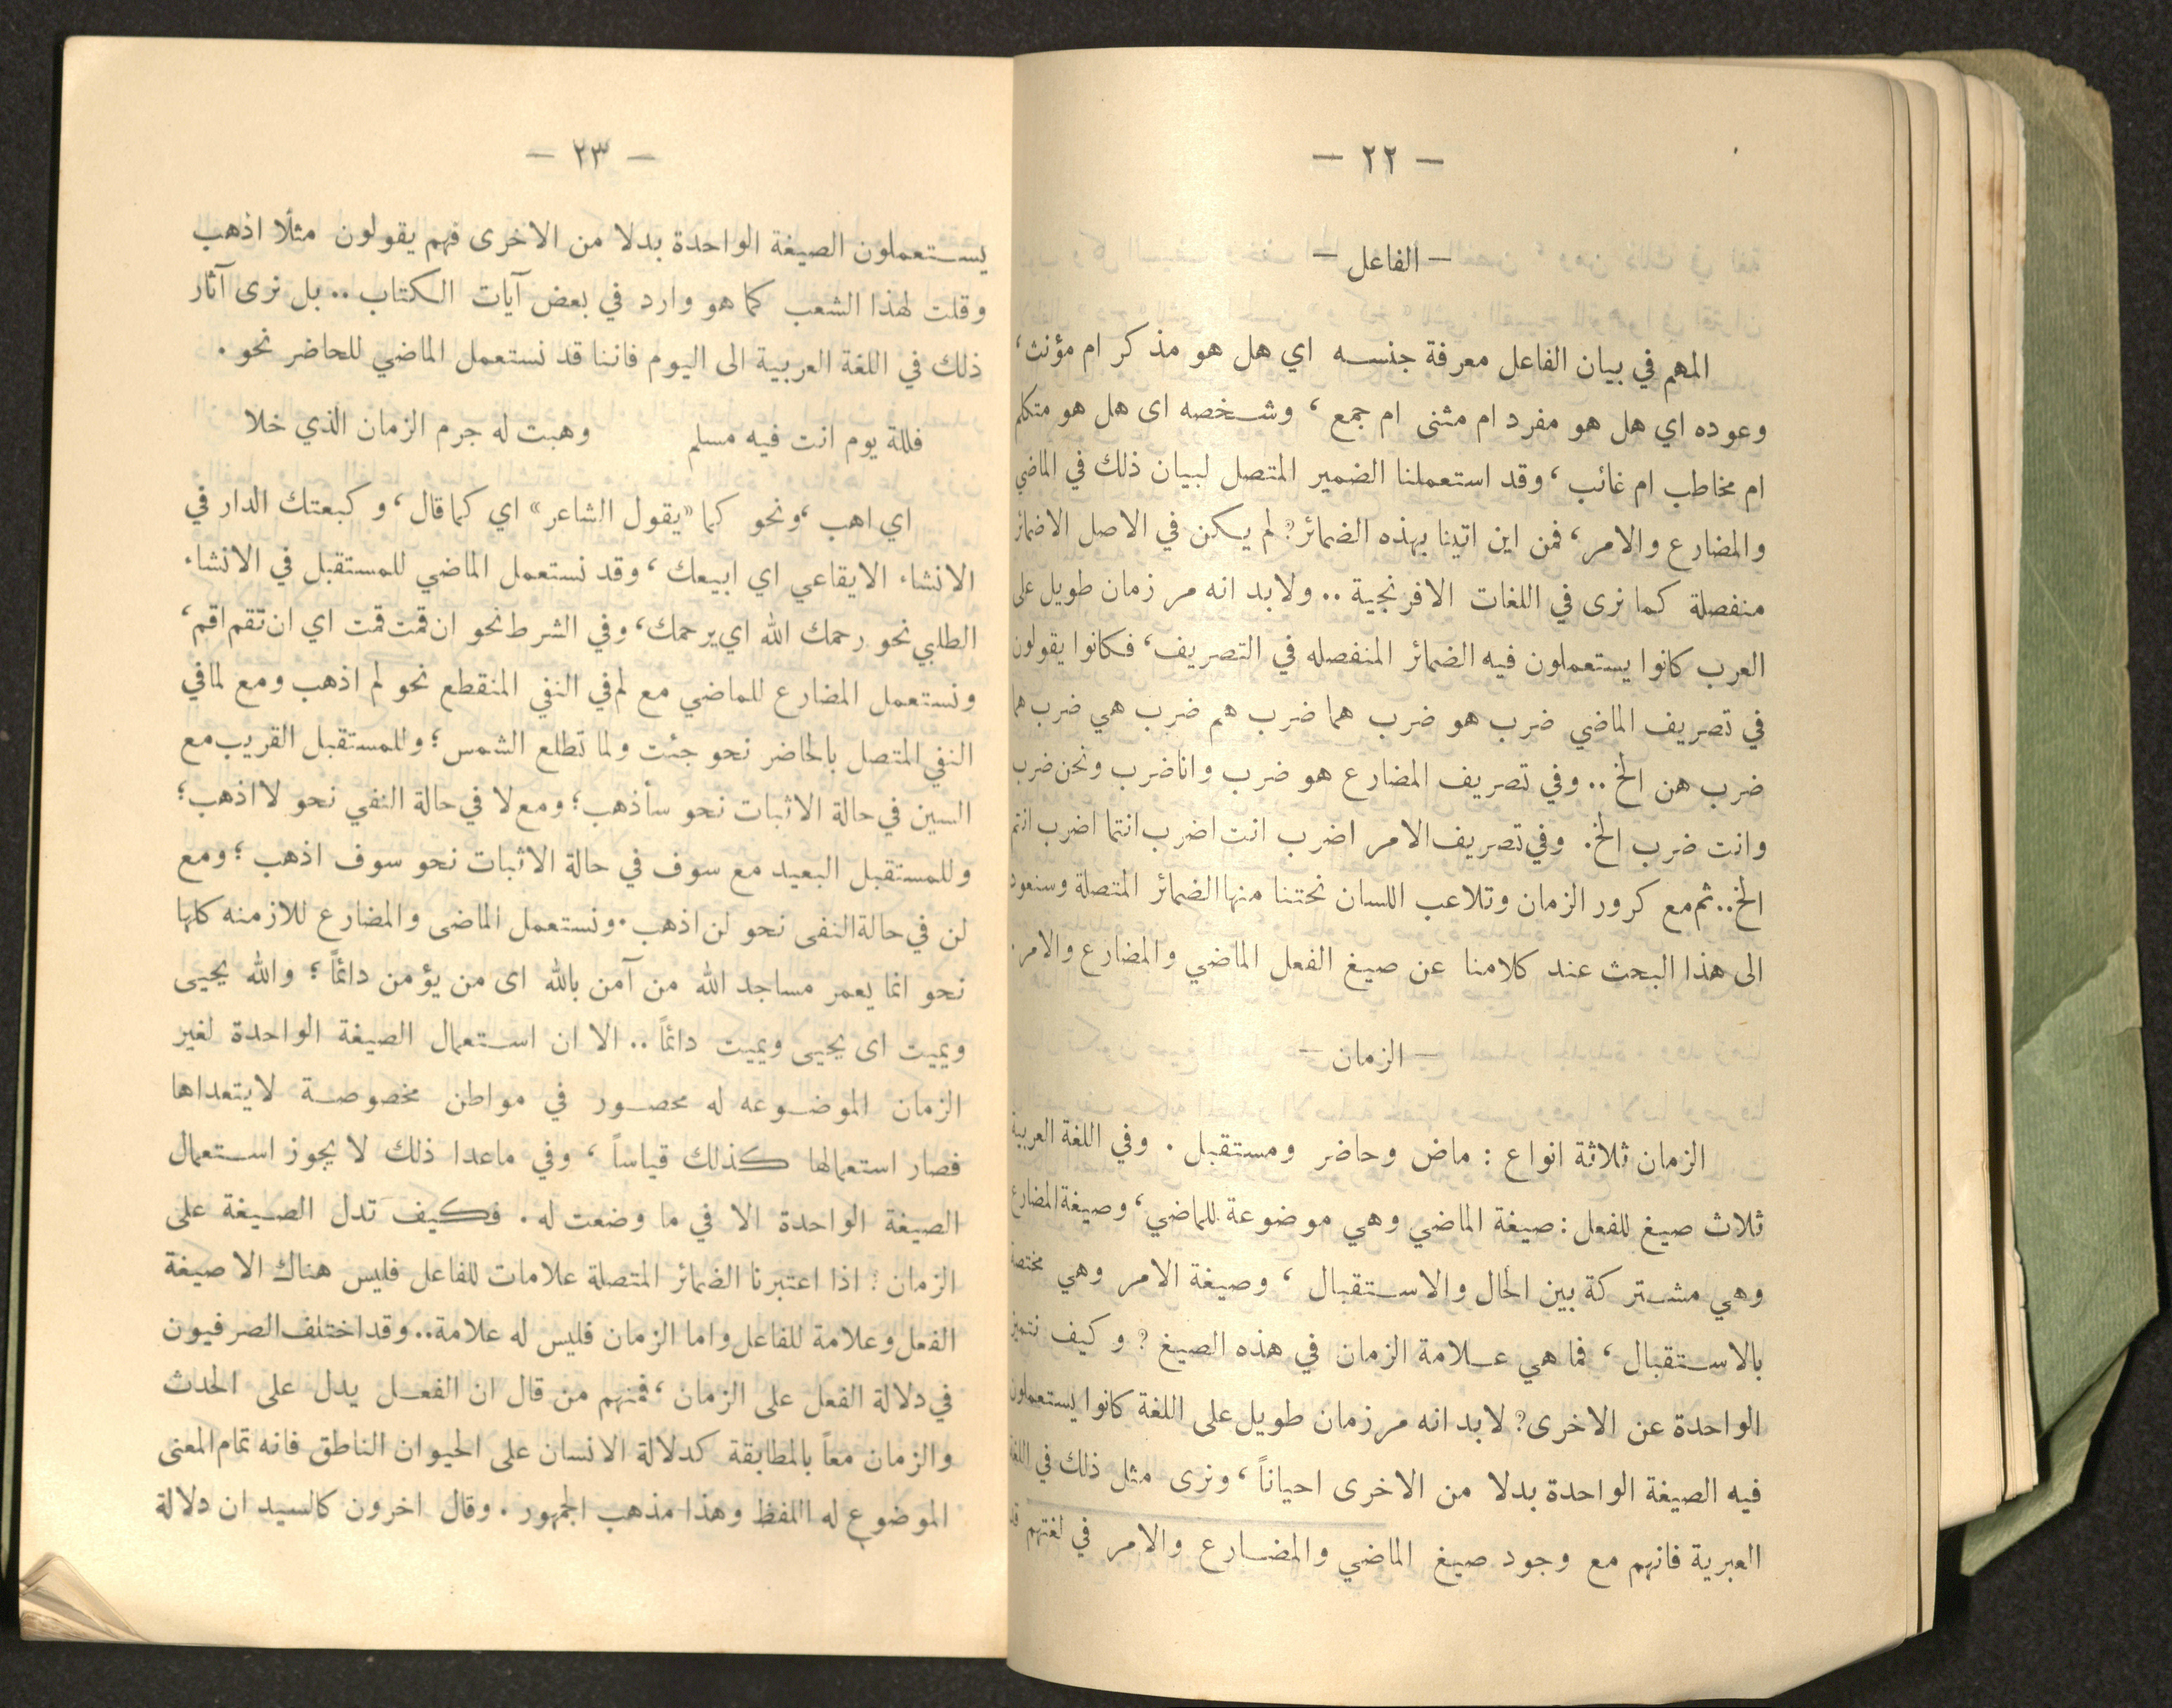 — ٢٢ —
— الفاعل —
المهم في بيان الفاعل معرفة جنسه اي هل هو مذكر ام مؤنث،
وعوده اي هل هو مفرد ام مثنى ام جمع ، وشخصه اى هل هو متكلم
ام مخاطب ام غائب ، وقد استعملنا الضمير المتصل لبيان ذلك في الماضي
والمضارع والامر، فمن اين اتينا بهذه الضمائر؟ لم يكن في الاصل الا ضمائر
منفصلة كما نرى في اللغات الافرنجية .. ولا بد انه مر زمان طويل على
العرب كانوا يستعملون فيه الضمائر المنفصله في التصريف، فكانوا يقولون
في تصريف الماضي ضرب هو ضرب هما ضرب هم ضرب هي ضرب هما
ضرب هن الخ .. وفي تصريف المضارع هو ضرب وانا ضرب ونحن ضرب
وانت ضرب الخ. وفي تصريف الامر اضرب انت اضرب انتما اضرب انتم
الخ.. ثم مع كرور الزمان وتلاعب اللسان نحتنا منها الضمائر المتصلة وسنعود
الى هذا البحث عند كلامنا عن صيغ الفعل الماضي والمضارع والامر.
— الزمان —
الزمان ثلاثة انواع : ماض وحاضر ومستقبل . وفي اللغة العربية
ثلاث صيغ للفعل : صيغة الماضي وهي موضوعة للماضي، وصيغة المضارع
وهي مشتركة بين الحال والاستقبال ، وصيغة الامر وهي مختصة
بالاستقبال ، فما هي علامة الزمان في هذه الصيغ ؟ وكيف نتميز
الواحدة عن الاخرى؟ لابد انه مر زمان طويل على اللغة كانوا يستعملون
فيه الصيغة الواحدة بدلا من الاخرى احياناً ، ونرى مثل ذلك في اللغة
العبرية فانهم مع وجود صيغ الماضي والمضارع والامر في لغتهم قد
— ٢٣ —
يستعملون الصيغة الواحدة بدلا من الاخرى فهم يقولون مثلًا اذهب
وقلت لهذا الشعب كما هو وارد في بعض آيات الكتاب .. بل نرى آثار
ذلك في اللغة العربية الى اليوم فاننا قد نستعمل الماضي للحاضر نحو .
فللة يوم انت فيه مسلم وهبت له جرم الزمان الذي خلا
اي اهب ،ونحو كما «يقول الشاعر» اي كما قال ، وكبعتك الدار في
الانشاء الايقاعي اي ابيعك ، وقد نستعمل الماضي للمستقبل في الانشاء
الطلبي نحو رحمك الله اي يرحمك، وفي الشرط نحو ان قمت قمت اي ان تقم اقم،
ونستعمل المضارع للماضي مع لم في النفي المنقطع نحو لم اذهب ومع لما في
النفي المتصل بالحاضر نحو جئت ولما تطلع الشمس ؛ وللمستقبل القريب مع
السين في حالة الاثبات نحو سأذهب؛ ومع لا في حالة النفي نحو لا اذهب؛
وللمستقبل البعيد مع سوف في حالة الاثبات نحو سوف اذهب ؛ ومع
لن في حالة النفى نحو لن اذهب. ونستعمل الماضى والمضارع للازمنه كلها
نحو انما يعمر مساجد الله من آمن بالله اى من يؤمن دائماً ؛ والله يحيى
ويميت اى يحيى ويميت دائماً .. الا ان استعمال الصيغة الواحدة لغير
الزمان الموضوعه له محصور في مواطن مخصوصة لا يتعداها
فصار استعمالها كذلك قياساً ، وفي ماعدا ذلك لا يجوز استعمال
الصيغة الواحدة الا في ما وضعت له . فكيف تدل الصيغة على
الزمان : اذا اعتبرنا الضمائر المتصلة علامات للفاعل فليس هناك الا صيغة
الفعل وعلامة للفاعل واما الزمان فليس له علامة.. وقد اختلف الصرفيون
في دلالة الفعل على الزمان ، فمنهم من قال ان الفعل يدل على الحدث
والزمان معاً بالمطابقة كدلالة الانسان على الحيوان الناطق فانه تمام المعنى
الموضوع له اللفظ وهذا مذهب الجمهور . وقال اخرون كالسيد ان دلالة